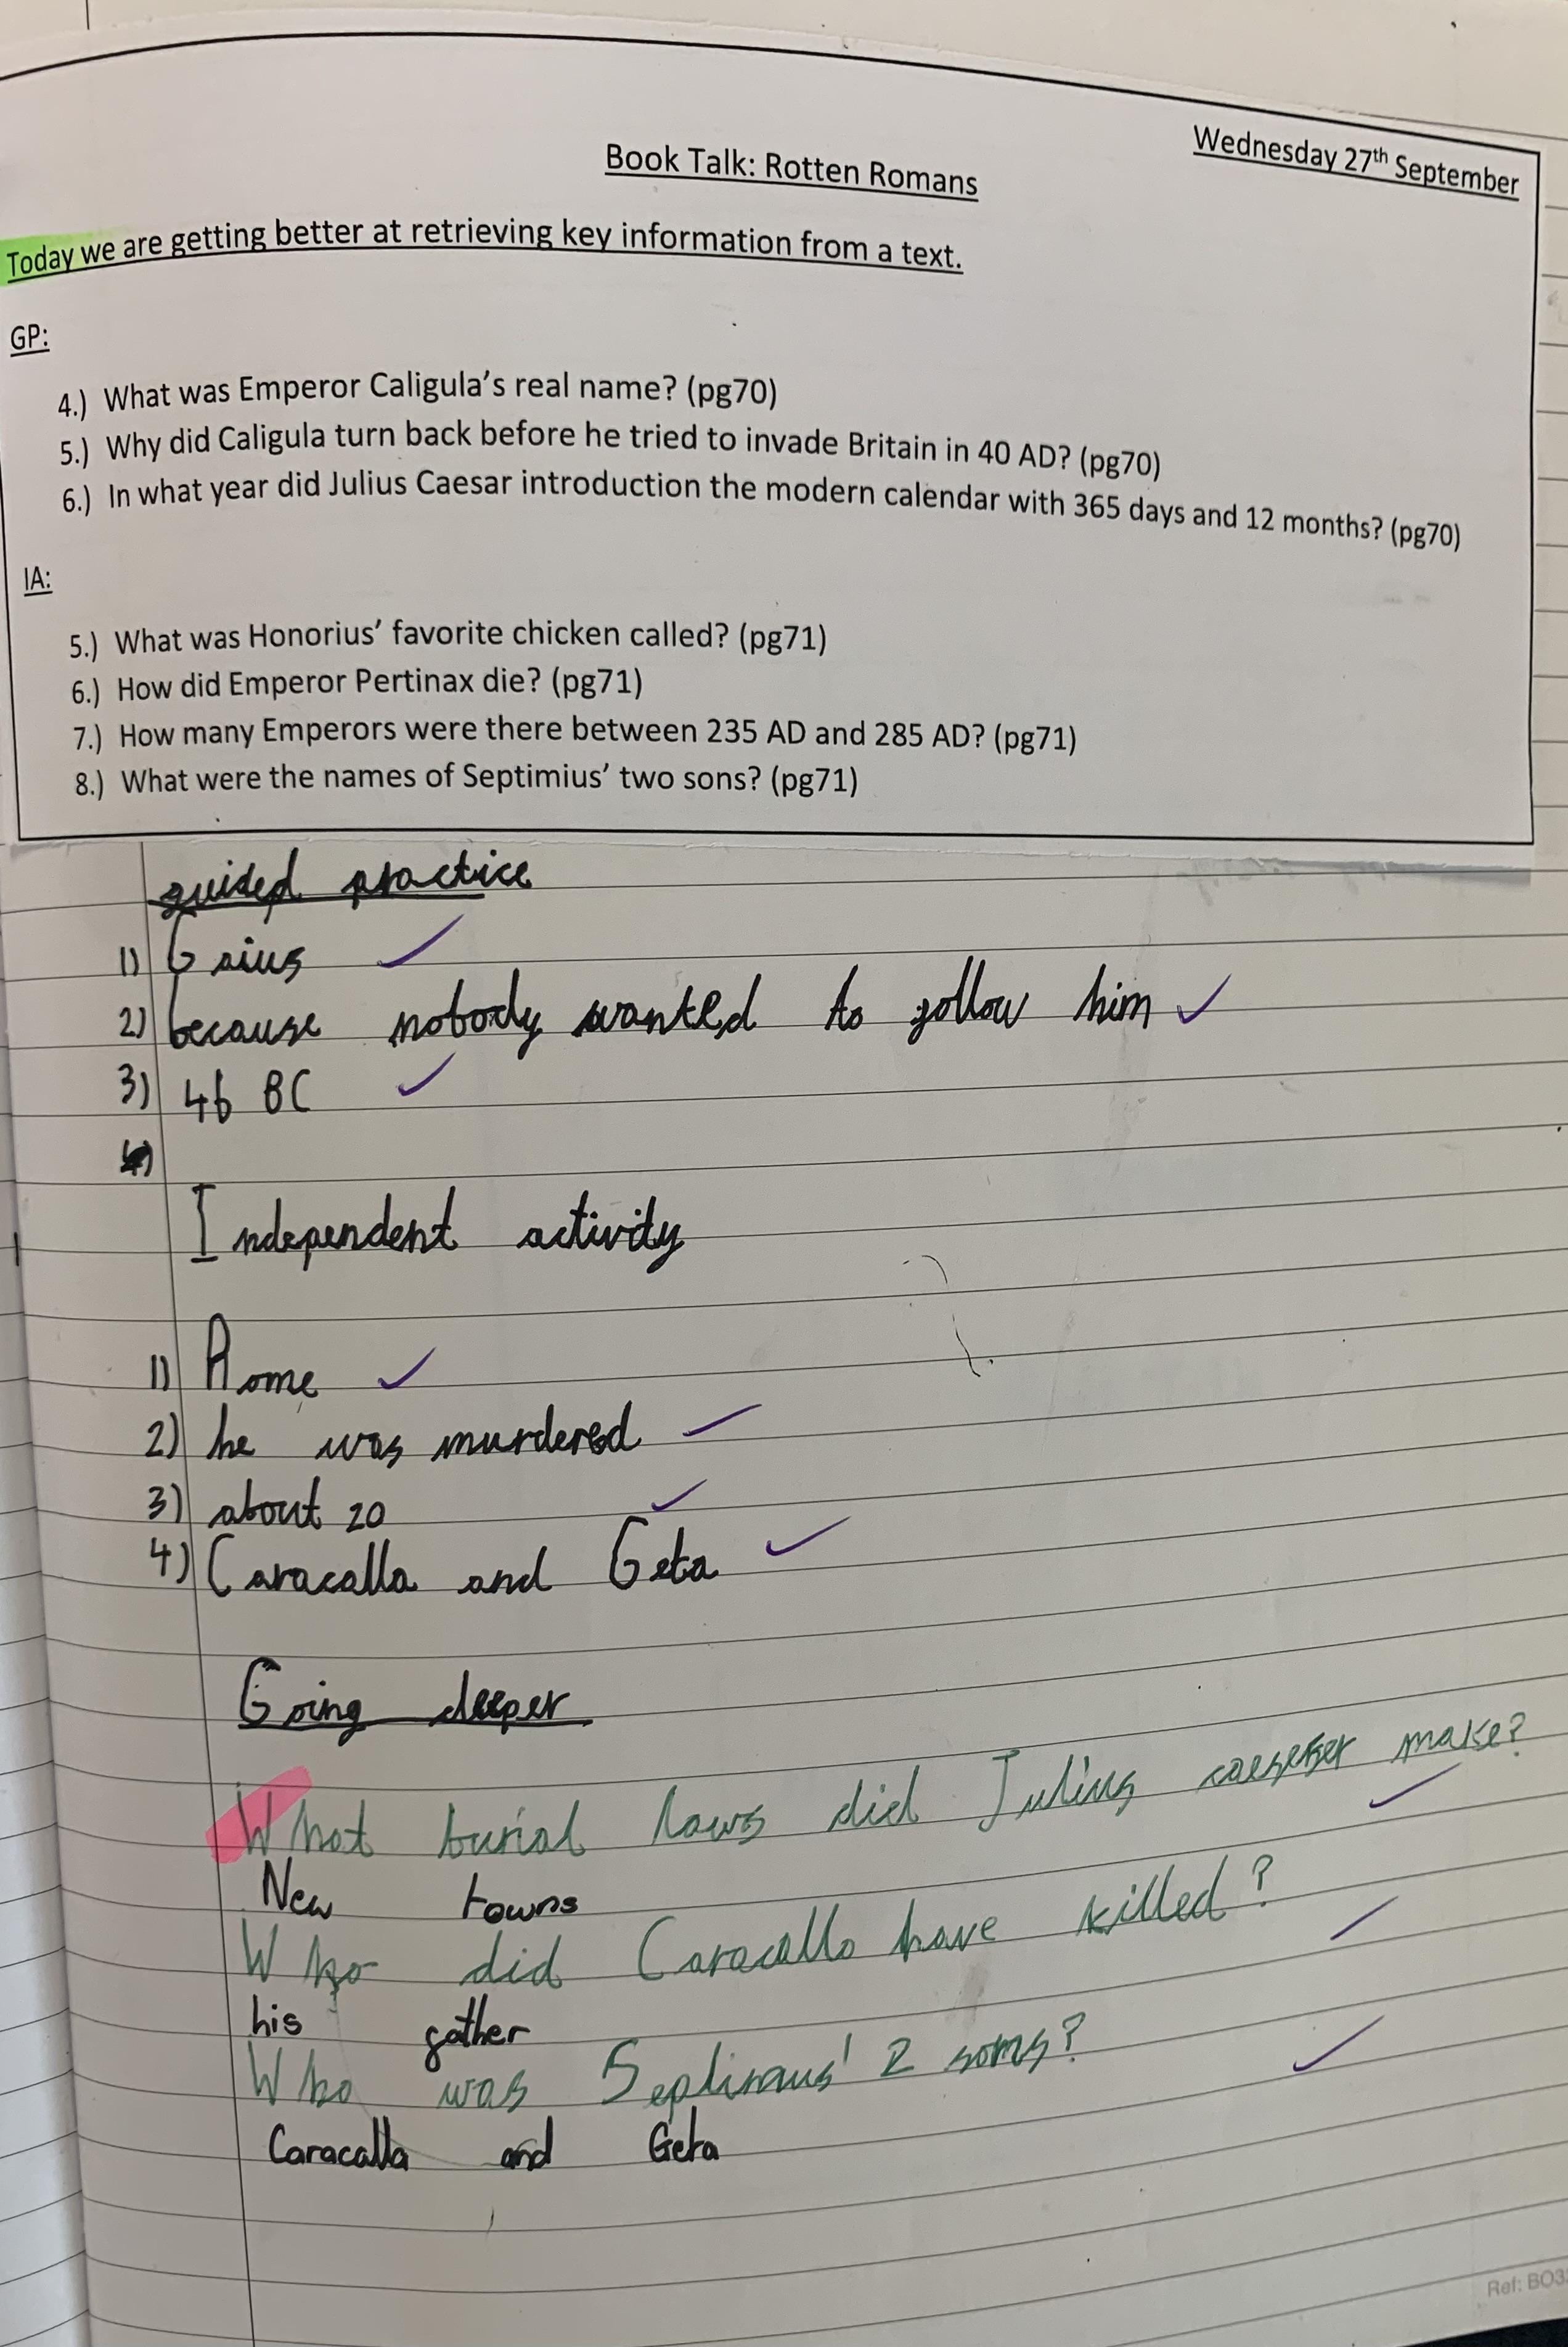 Wednesday 27th September
Book Talk: Rotten Romans
Today we are getting better at retrieving key information from a text.
GP:
4.) What was Emperor Caligula's real name? (pg70)
5.) Why did Caligula turn back before he tried to invade Britain in 40 AD? (pg70)
6.) In what year did Julius Caesar introduction the modern calendar with 365 days and 12 months? (pg70)
IA:
5.) What was Honorius' favorite chicken called? (pg71)
6.) How did Emperor Pertinax die? (pg71)
7.) How many Emperors were there between 235 AD and 285 AD? (pg71)
8.) What were the names of Septimius' two sons? (pg71)
guided practice
1) Gaius
2) because nobody wanted to follow him
3) 46 BC
Independent activity
1) Rome
2) he was murdered
3) about 20
4) Caracalla and Geta
Going deeper
What burial laws did Julius make?
New towns
Who did Caracalla have killed?
his father
Who was 2 sons?
Caracalla and Geta
Ref: BO3